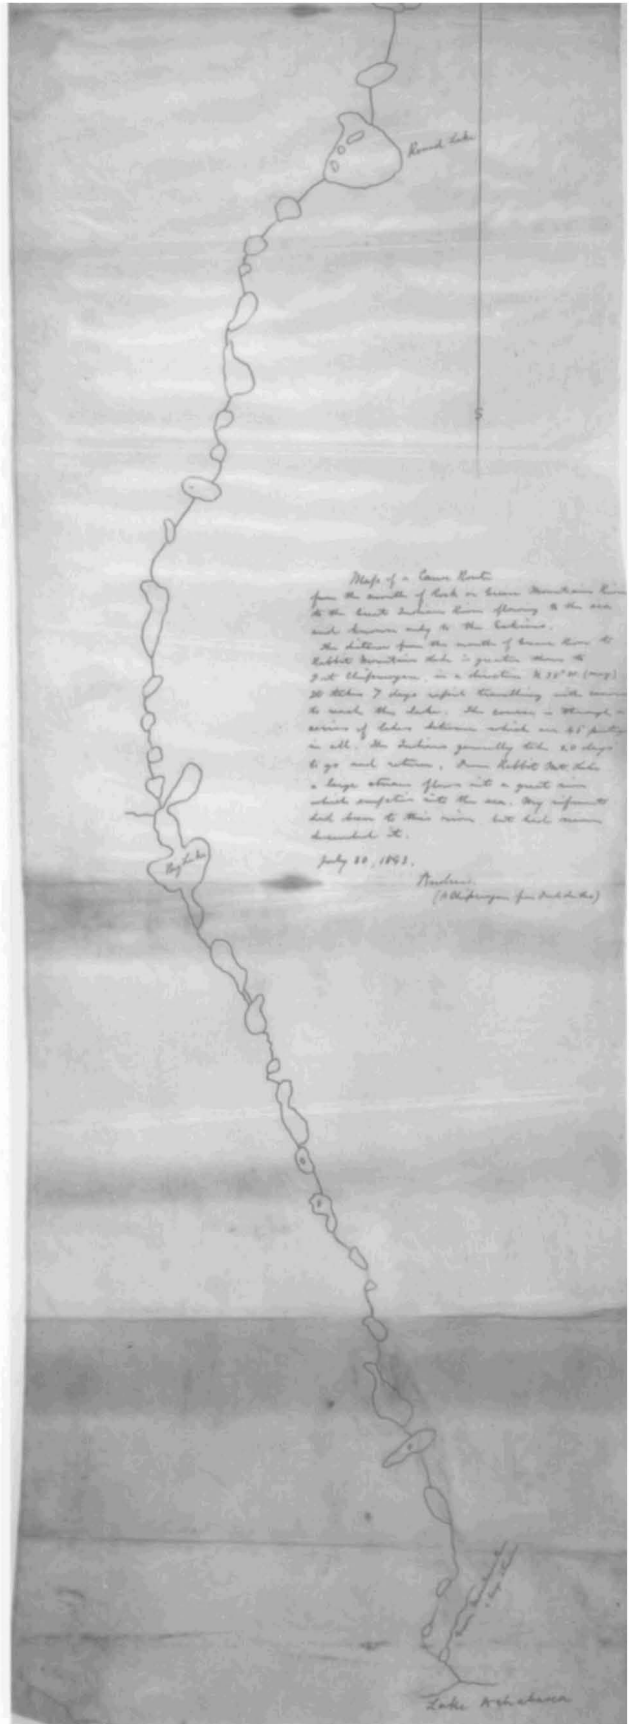 Round Lake
S
Map of a Canoe Route
from the mouth of Rock or Grease Mountain River
to the Great Indian River flowing to the sea
and known only to the Eskimo.
The distance from the mouth of Grease River to
Rabbit Mountain Lake is greater than to
Fort Chipewyan, in a direction N 30° W (mag)
It takes 7 days rapid travelling with canoe
to reach this lake. The course is through a
series of lakes between which are 45 portages
in all. The Indians generally take 20 days
to go and return. From Rabbit Mt. Lake
a large stream flows into a great river
which empties into the sea. My informant
had been to this river but had never
descended it.
July 30, 1893.
Andrew.
(A Chipewyan from Fond du Lac)
Big Lake
Lake Athabasca